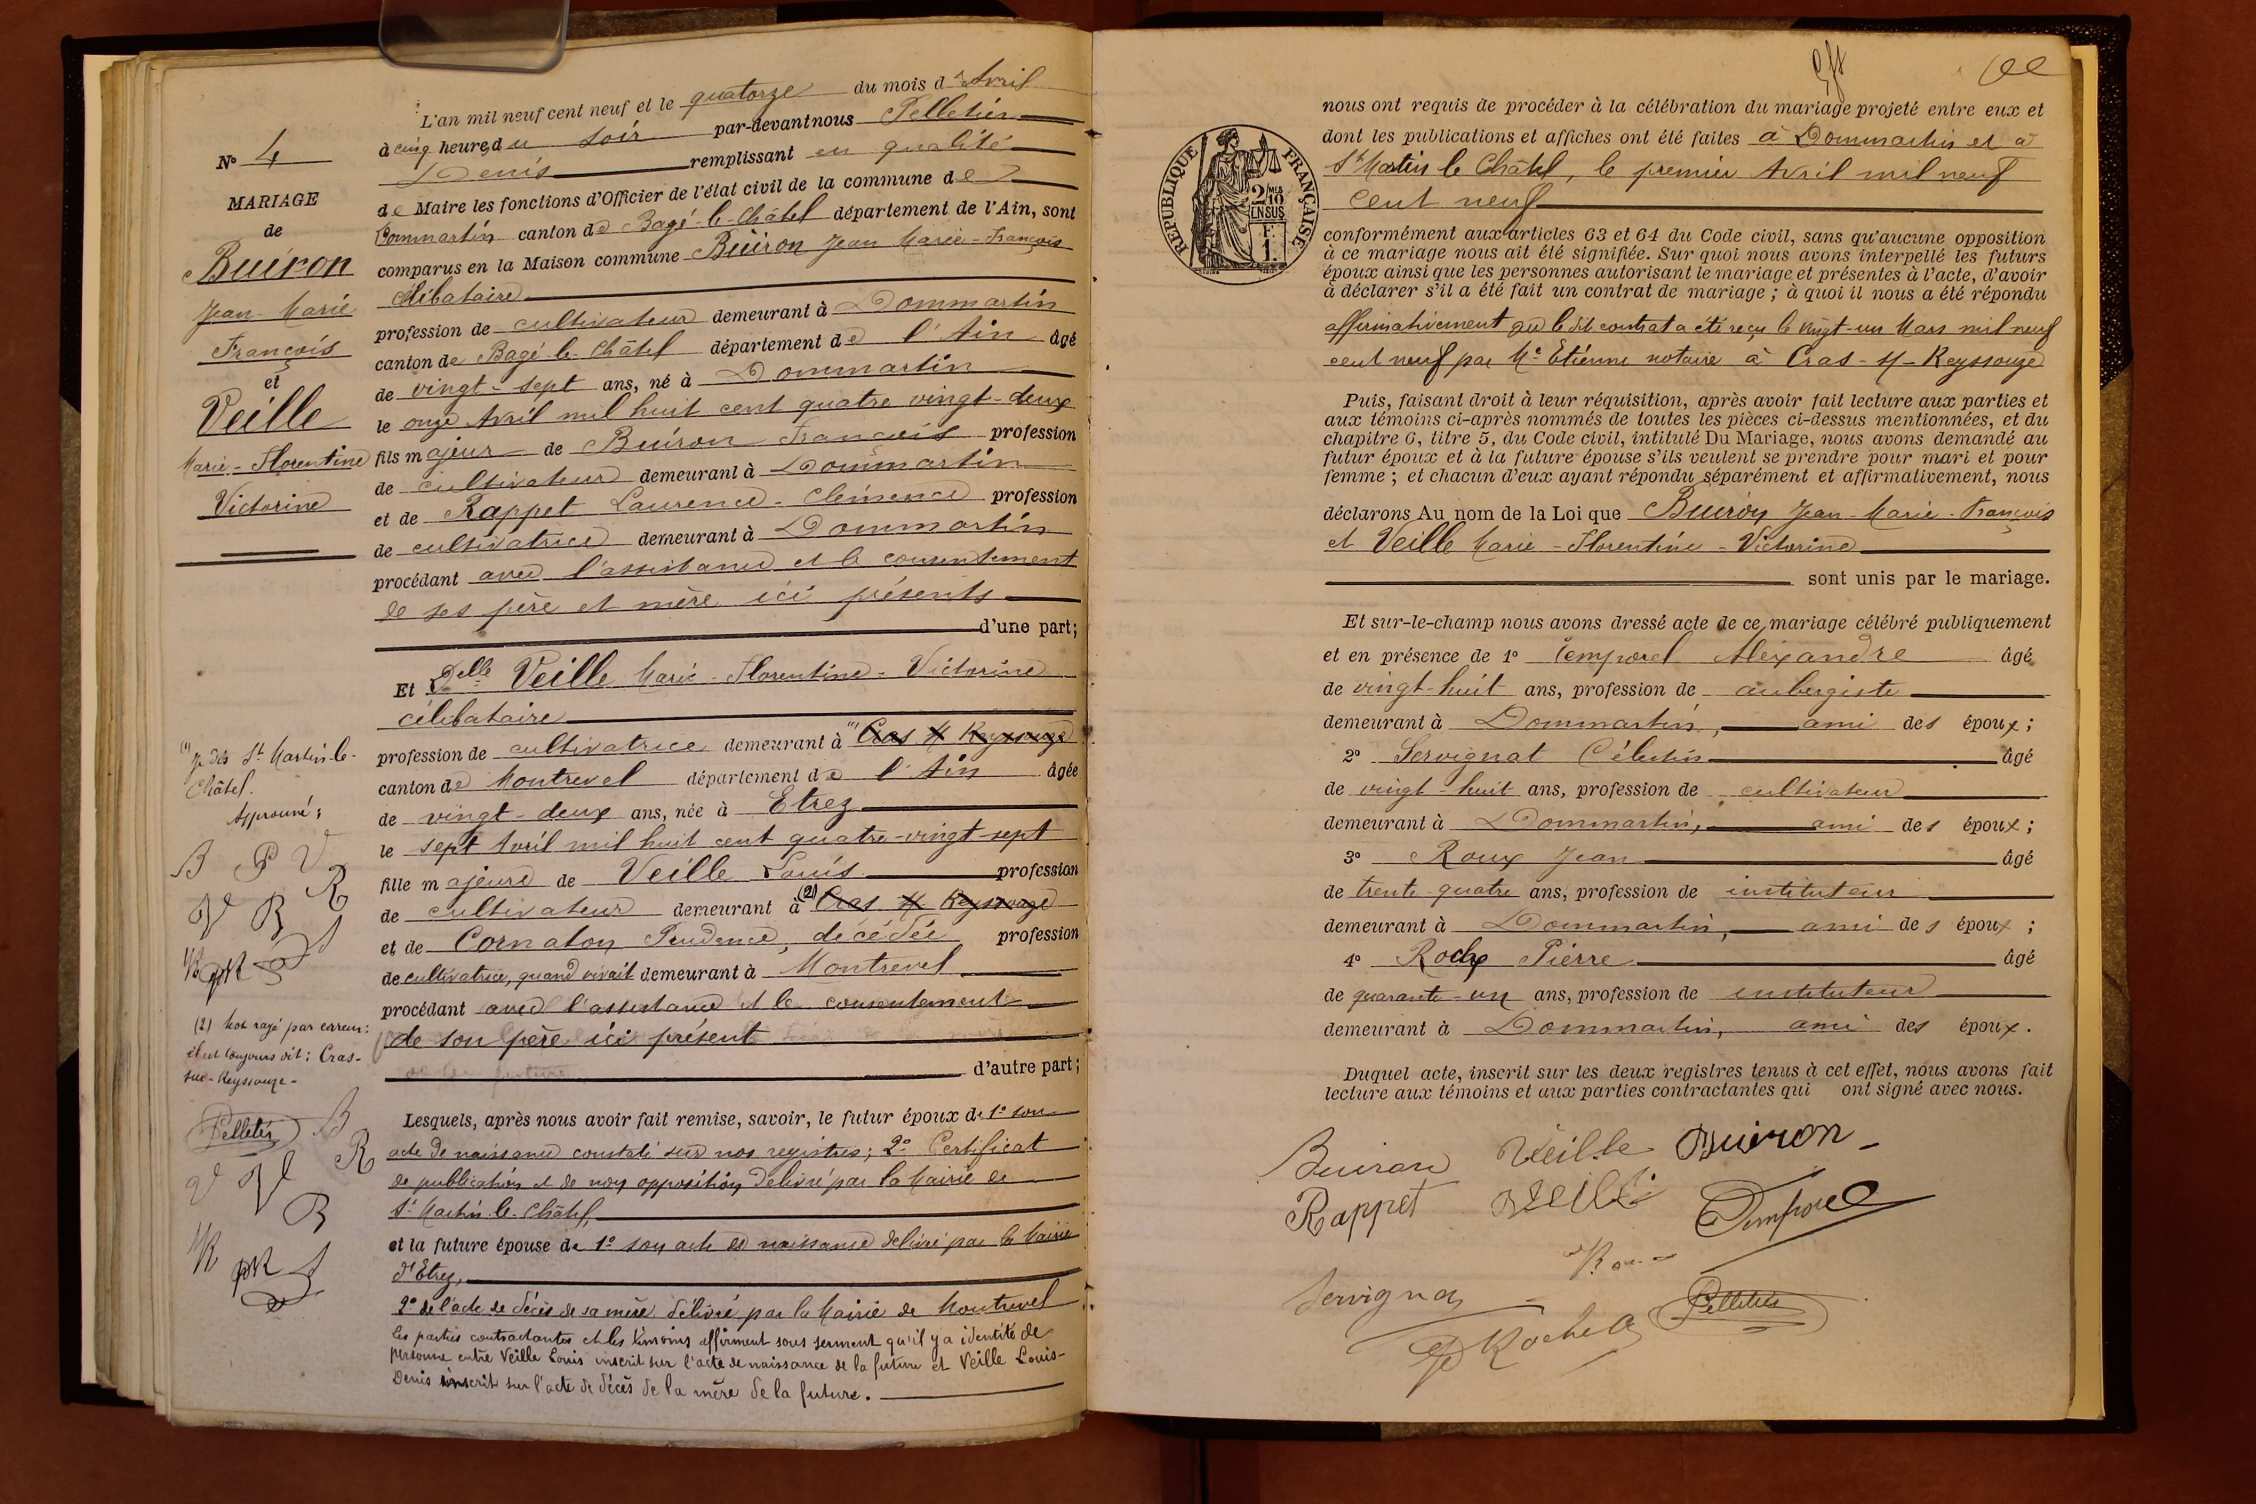 N° 4
MARIAGE
de
Buiron
Jean-Marie
François
et
Veille
Marie-Florentine
Victorine
L'an mil neuf cent neuf et le quatorze du mois d'Avril
à cinq heures du soir par-devant nous Pelletier
Denis remplissant en qualité
de Maire les fonctions d'Officier de l'état civil de la commune de
Dommartin canton de Bagé-le-Châtel département de l'Ain, sont
comparus en la Maison commune Buiron Jean Marie-François
célibataire
profession de cultivateur demeurant à Dommartin
canton de Bagé-le-Châtel département de l'Ain âgé
de vingt-sept ans, né à Dommartin
le onze Avril mil huit cent quatre vingt-deux
fils majeur de Buiron François profession
de cultivateur demeurant à Dommartin
et de Rappet Laurence-Clémence profession
de cultivatrice demeurant à Dommartin
procédant avec l'assistance et le consentement
de ses père et mère ici présents
d'une part;
Et Delle Veille Marie-Florentine-Victorine
célibataire
profession de cultivatrice demeurant à (1) Cras s/ Reyssouze
canton de Montrevel département de l'Ain âgée
de vingt-deux ans, née à Etrez
le sept Avril mil huit cent quatre-vingt-sept
fille majeure de Veille Louis profession
de cultivateur demeurant à (2) Cras s/ Reyssouze
et de Cornaton Prudence, décédée profession
de cultivatrice, quand vivait demeurant à Montrevel
procédant avec l'assistance et le consentement
de son père ici présent
d'autre part;
Lesquels, après nous avoir fait remise, savoir, le futur époux de 1° son
acte de naissance constaté sur nos registres; 2° Certificat
de publication et de non opposition délivré par la Mairie de
St Martin-le-Châtel,
et la future épouse de 1° son acte de naissance délivré par la Mairie
d'Etrez,
2° de l'acte de décès de sa mère délivré par la Mairie de Montrevel
Les parties contractantes et les témoins affirment sous serment qu'il y a identité de
personne entre Veille Louis inscrit sur l'acte de naissance de la future et Veille Louis-
Denis inscrit sur l'acte de décès de la mère de la future.
(1) St Martin-le-
Châtel.
Approuvé:
B P V
V B R
(2) Mot rayé par erreur:
il est toujours dit: Cras-
sur-Reyssouze-
Pelletier B
V V R
B
nous ont requis de procéder à la célébration du mariage projeté entre eux et
dont les publications et affiches ont été faites à Dommartin et à
St Martin le Châtel, le premier Avril mil neuf
cent neuf
RÉPUBLIQUE FRANÇAISE
2/10
EN SUS
F.
1.
conformément aux articles 63 et 64 du Code civil, sans qu'aucune opposition
à ce mariage nous ait été signifiée. Sur quoi nous avons interpellé les futurs
époux ainsi que les personnes autorisant le mariage et présentes à l'acte, d'avoir
à déclarer s'il a été fait un contrat de mariage; à quoi il nous a été répondu
affirmativement que le dit contrat a été reçu le vingt-un Mars mil neuf
cent neuf par Me Etienne notaire à Cras-s/-Reyssouze
Puis, faisant droit à leur réquisition, après avoir fait lecture aux parties et
aux témoins ci-après nommés de toutes les pièces ci-dessus mentionnées, et du
chapitre 6, titre 5, du Code civil, intitulé Du Mariage, nous avons demandé au
futur époux et à la future épouse s'ils veulent se prendre pour mari et pour
femme; et chacun d'eux ayant répondu séparément et affirmativement, nous
déclarons Au nom de la Loi que Buiron Jean-Marie-François
et Veille Marie-Florentine-Victorine
sont unis par le mariage.
Et sur-le-champ nous avons dressé acte de ce mariage célébré publiquement
et en présence de 1° Temporel Alexandre âgé
de vingt-huit ans, profession de aubergiste
demeurant à Dommartin, ami des époux;
2° Servignat Célestin âgé
de vingt-huit ans, profession de cultivateur
demeurant à Dommartin, ami des époux;
3° Roux Jean âgé
de trente-quatre ans, profession de instituteur
demeurant à Dommartin, ami des époux;
4° Roche Pierre âgé
de quarante-un ans, profession de instituteur
demeurant à Dommartin, ami des époux.
Duquel acte, inscrit sur les deux registres tenus à cet effet, nous avons fait
lecture aux témoins et aux parties contractantes qui ont signé avec nous.
Buiron Veille Buiron
Rappet Veille Temporel
Roux
Servignat Pelletier
P Roche